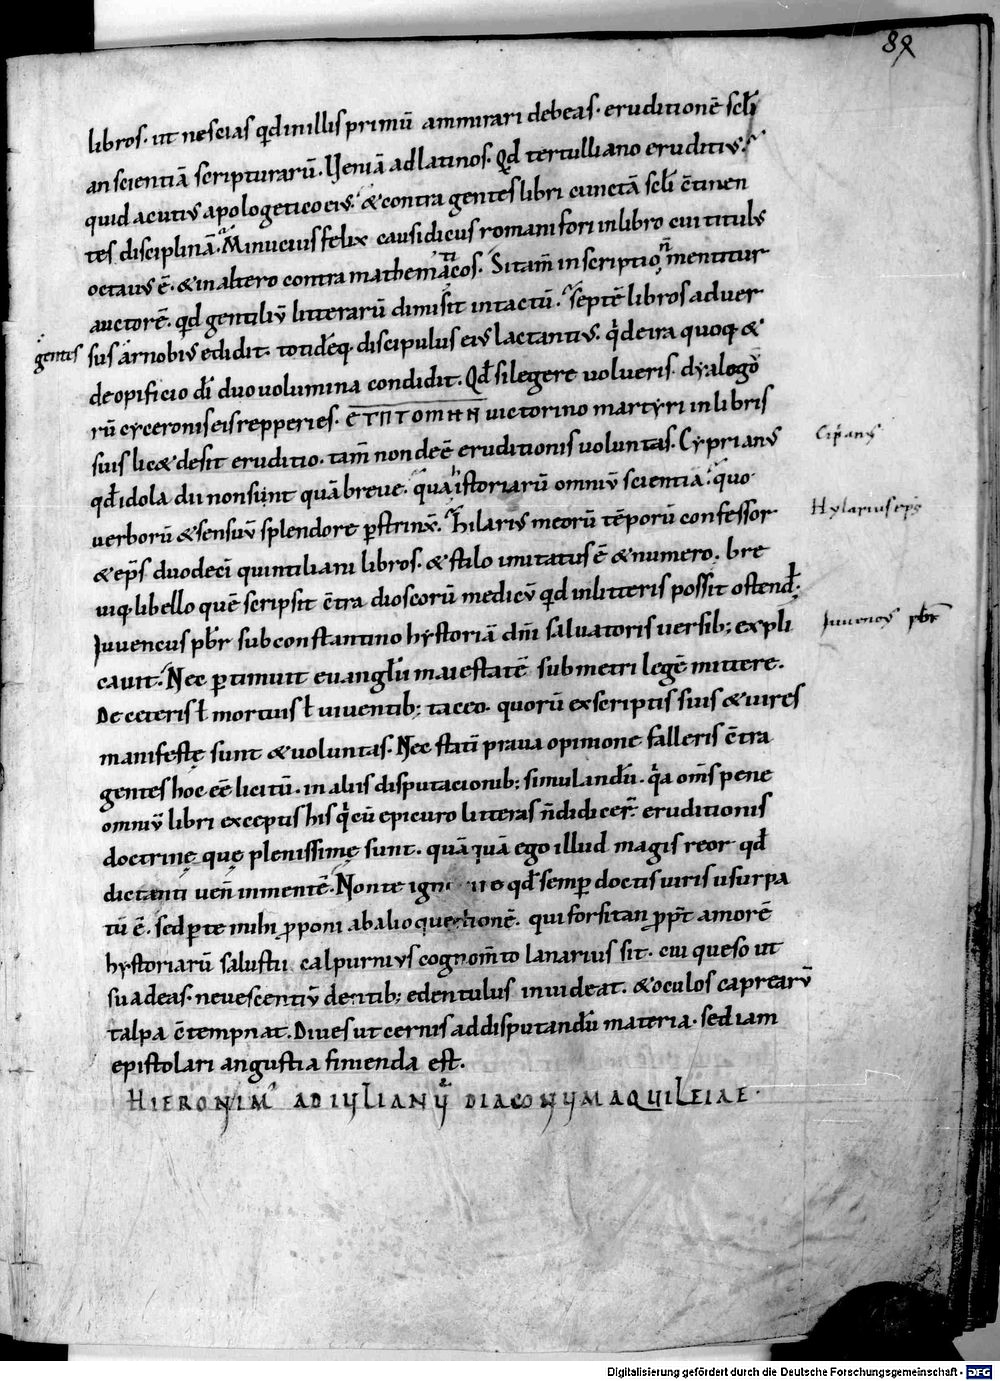 89
libros · ut nescias qd in illis primū ammirari debeas · eruditionē scłi
an scientiā scripturarū · Veniā ad latinos · Qđ tertulliano eruditiꝰ ·
quid acutiꝰ apologeticꝰ eiꝰ · & contra gentes libri cunctā scłi c̄tinen
tes disciplinā · Minucius felix causidicus romani fori in libro cui titulꝰ
octauꝰ ē · & in altero contra mathematicos · Si tam̄ inscriptio n̄ mentitur
auctorē · qd gentiliū litterarū dimisit intactū · septē libros aduer
gentes
sus arnobiꝰ edidit · totidēq· discipulus eiꝰ lactantiꝰ · q̇ de ira quoq· &
de opificio dī duo uolumina condidit · Qđ si legere uolueris · dyalogo
rū cyceronis eis repperies · victorino martyri in libris
suis lic& desit eruditio · tam̄ non deē eruditionis voluntas · Cyprianꝰ
qđ idola dii non sunt quā breue · qua istoriarū omniū scientia · quo
Ciṗanꝰ
uerborū & sensuū splendore pstrinx̄ · Hilariꝰ meorū tēporū confessor
Hylarius ep̄s
& ep̄s duodecī quintiliani libros · & stilo imitatus ē & numero · bre
uiq· libello quē scripsit c̄tra dioscorū medicū qd in litteris possit ostenđ;
Iuuencus pbr̄ sub constantino hystoriā dn̄i saluatoris uersib; expli
Iuuencꝰ pbr̄
cauit · Nec ptimuit euanglīi maiestatē sub metri legē mittere ·
De ceteris ł mortuis ł uiuentib; taceo · quorū ex scriptis suis & uires
manifestę sunt & uoluntas · Nec statī praua opinione falleris c̄tra
gentes hoc eē licitū · in aliis disputacionib; simulandū · q̇a om̄s pene
omniū libri exceptis his q̇ cū epicuro litteras n̄ didicer̄ · eruditionis
doctrinę quę plenissimę sunt · quāquā ego illud magis reor qđ
dictanti uen̄ in mentē · Non te qđ semp doctis uiris usurpa
tū ē · sed p te mihi p̱poni ab alio questionē · qui forsitan ppt̄ amorē
hystoriarū salustii calpurniꝰ cognom̄to lanarius sit · cui queso ut
suadeas · ne uescentiū dentib; edentulus inuideat · & oculos caprearū
talpa c̄tempnat · Diues ut cernis ad disputandū materia · sed iam
epistolari angustia finienda est ·
HIERONIMꝰ AD IULIANŪ DIACONUM AQUILEIAE ·
Digitalisierung gefördert durch die Deutsche Forschungsgemeinschaft · DFG